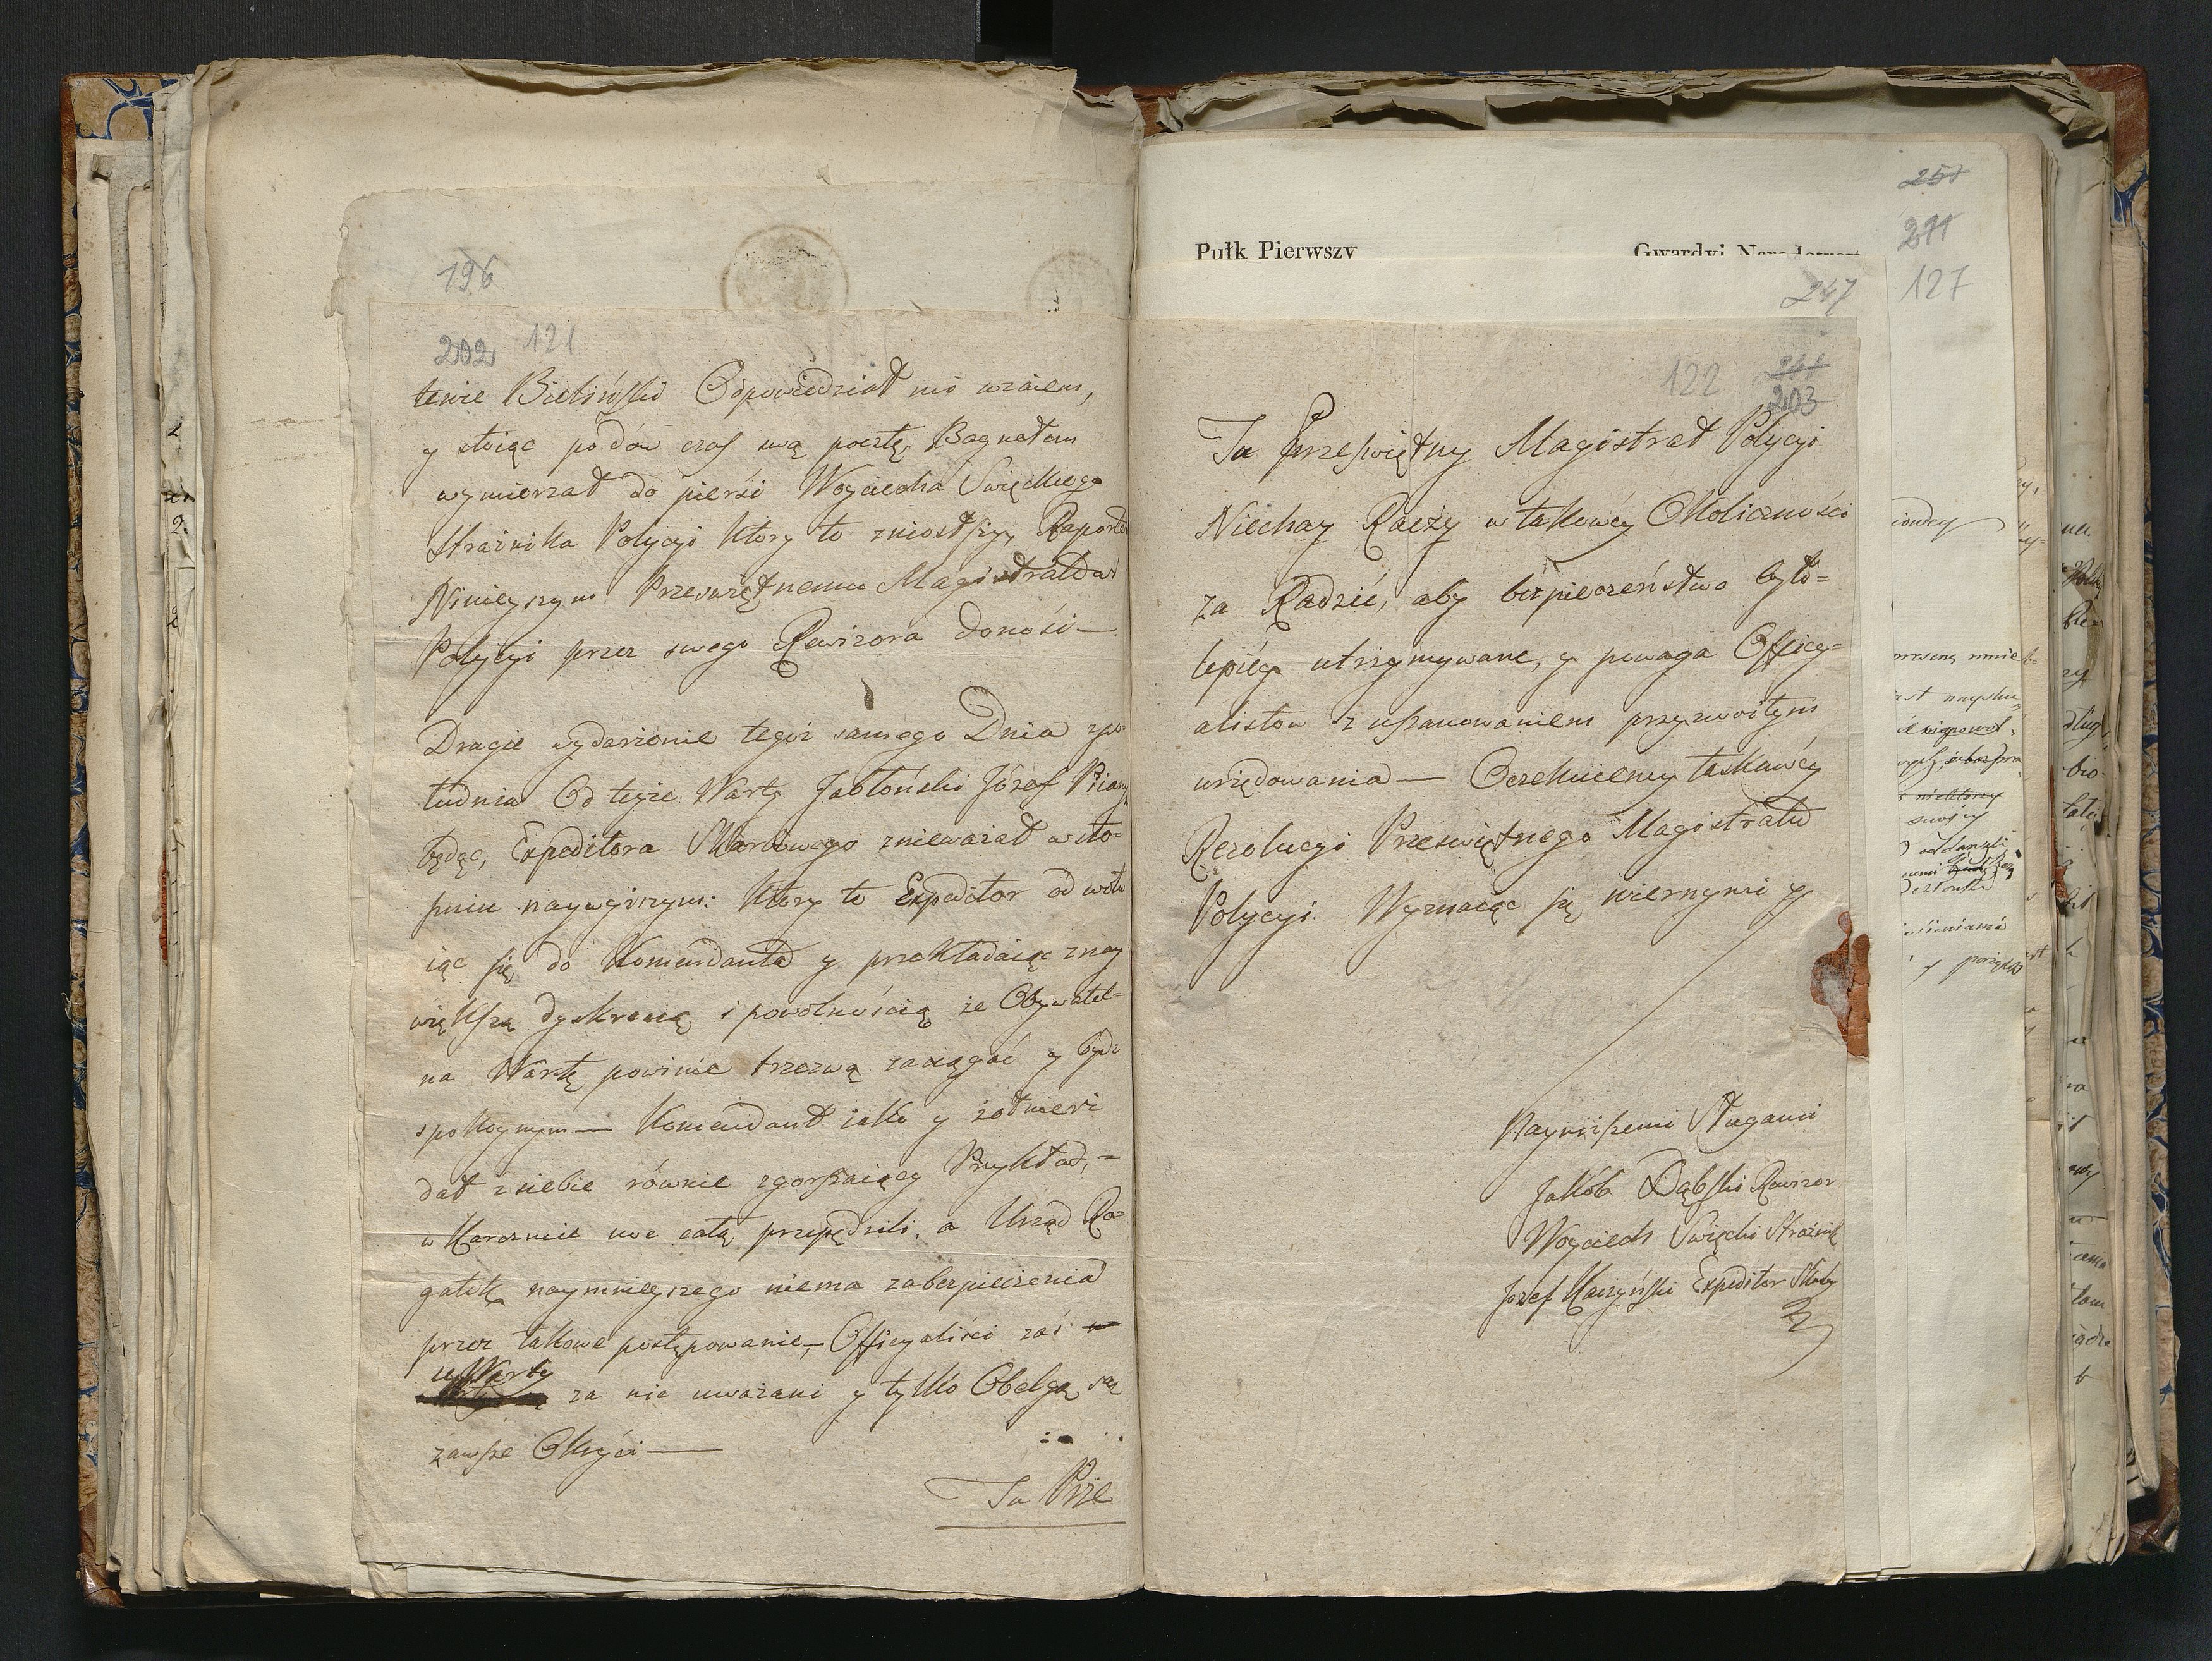 196
202 121
tenie Bieliński Odpowiedział nie wziełem,
y stoiąc podów czas swą pocztę, Bagnetem
wymierzał do pierśi Woyciecha Swięckiego
Strażnika Polycyi który to zniosłszy, Raportem
Ninieyszym Przeświętnemu Magistratowi
Polycyi przez swego Rewizora donośi —
Drugie wydarzenie tegoż samego Dnia
łudnia Od teyże Warty Jabłoński Józef Piany
będąc, Expeditora Skarbowego znieważał w sto=
pniu naywyższym: który to Expeditor od
iąc się do Komendanta y przekładaiąc z nay
większą dyskrecią i powolnością że Obywatel=
na Wartę powinie trzezwą zaciągać y bydź
spokoynym — Komendant iako y żołnierz
dał z siebie równie zgorszaiący Przykład,=
w Karczmie noc całą przepędzili, a Urząd Ro=
gatek naymnieyszego niema zabezpieczenia
przez takowe postępowanie, — Officyaliści zaś
u Warty
za nic uważani y tylko Obelgą są
zawsze Okryći —
Tu Prze
Pułk Pierwszy Gwardyi Narodowey
251
271
247 127
122
203
Tu Przeswiętny Magistrat Polycyi
Niechay Raczy w takowey Okoliczności
za Radzić, aby bezpieczeństwo było=
lepiey utrzymywane, y powaga Officy=
alistow z uszanowaniem przyzwoitym
urzędowania — Oczekuiemy łaskawey
Rezolucyi Przeswiętnego Magistratu
Polycyi. Wyznaiąc się wiernymi y
Nayniższemi Sługami
Jakób Dąbski Rewizor
Woyciech Swięcki Strażnik
Jozef Kaczyński Expeditor Skarby